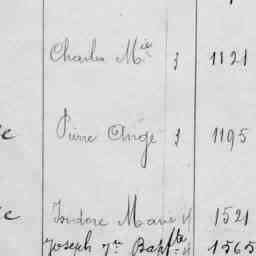 Charles Mie 1121
Pierre Ange 1195
Isidore Marie 1521
Joseph Jn Bapte 1565